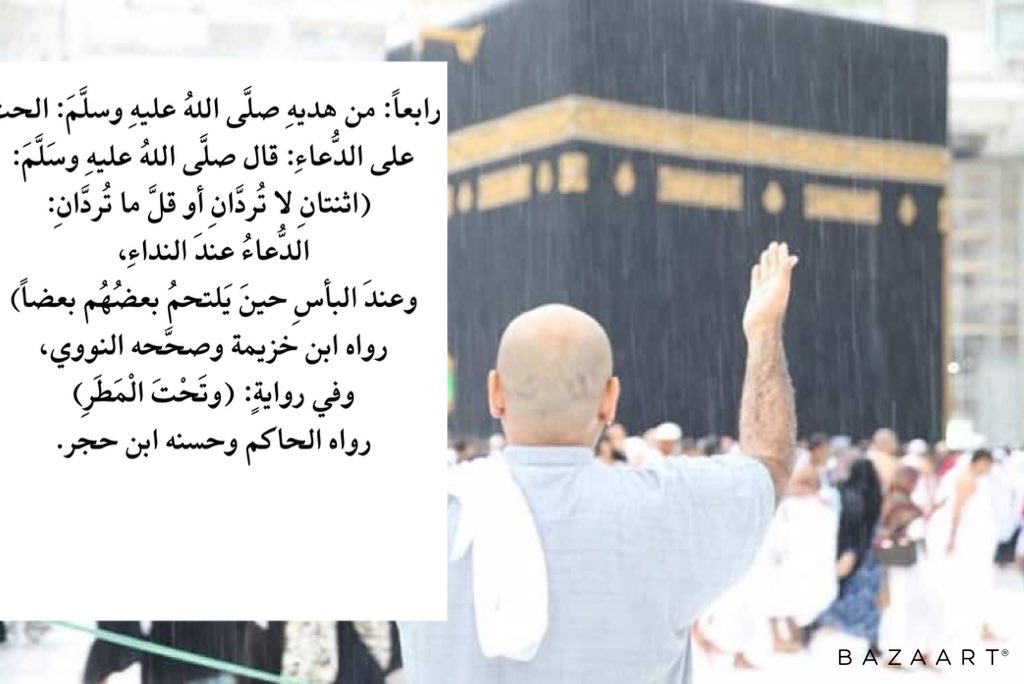 رابعاً: من هديهِ صلَّى اللهُ عليهِ وسلَّمَ: الحث
على الدُّعاءِ: قال صلَّى اللهُ عليهِ وسَلَّمَ:
(اثنتانِ لا تُردَّانِ أو قلَّ ما تُردَّانِ:
الدُّعاءُ عندَ النداءِ،
وعندَ البأسِ حينَ يَلتحمُ بعضُهُم بعضاً)
رواه ابن خزيمة وصحَّحه النووي،
وفي روايةٍ: (وتَحْتَ الْمَطَرِ)
رواه الحاكم وحسنه ابن حجر.
BAZAART®